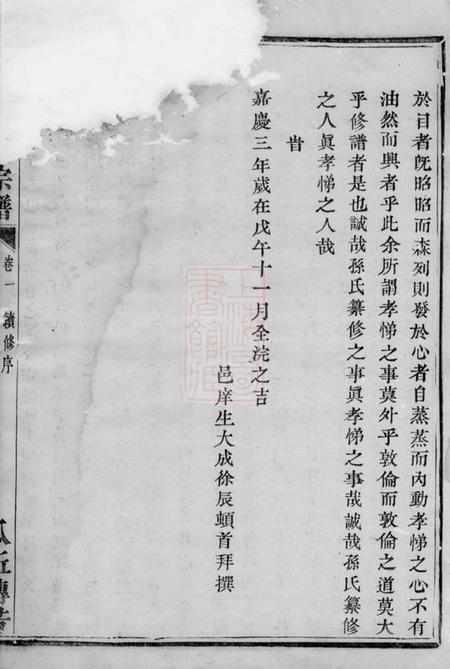 於目者旣昭昭而森列則發於心者自蒸蒸而內動孝悌之心不有
油然而興者乎此余所謂孝悌之事莫外乎敦倫而敦倫之道莫大
乎修譜者是也誠哉孫氏纂修之事眞孝悌之事哉誠哉孫氏纂修
之人眞孝悌之人哉
旹
嘉慶三年歲在戊午十一月全浣之吉
邑庠生大成徐辰頓首拜撰
宗譜
卷一
續修序